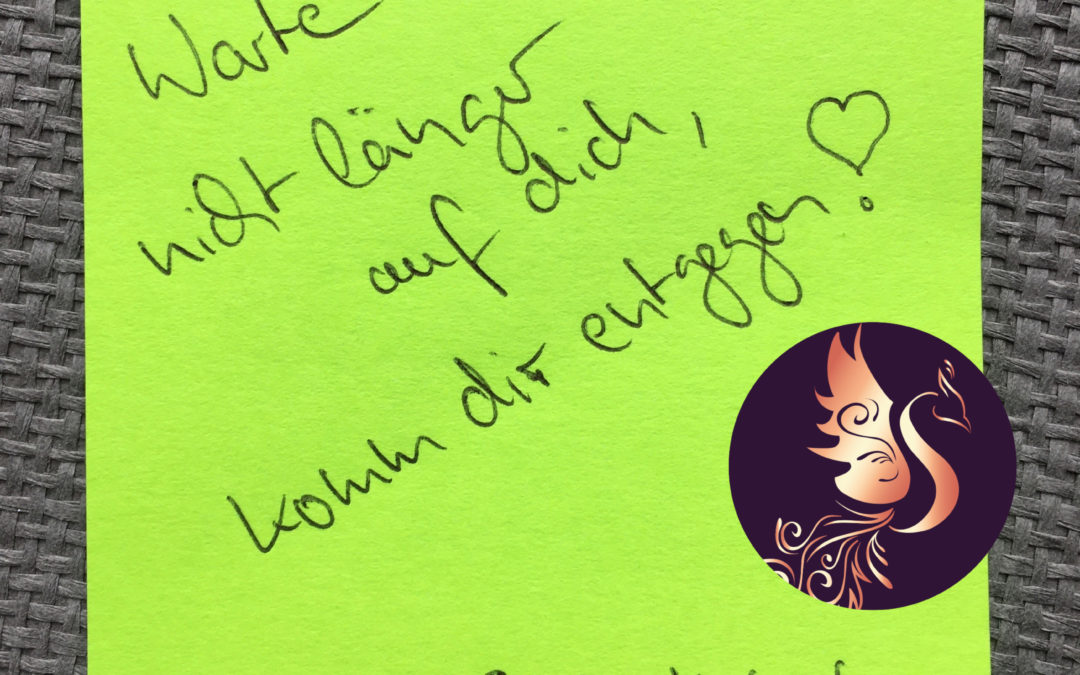 Warte
nicht länger
auf dich,
komm dir entgegen!